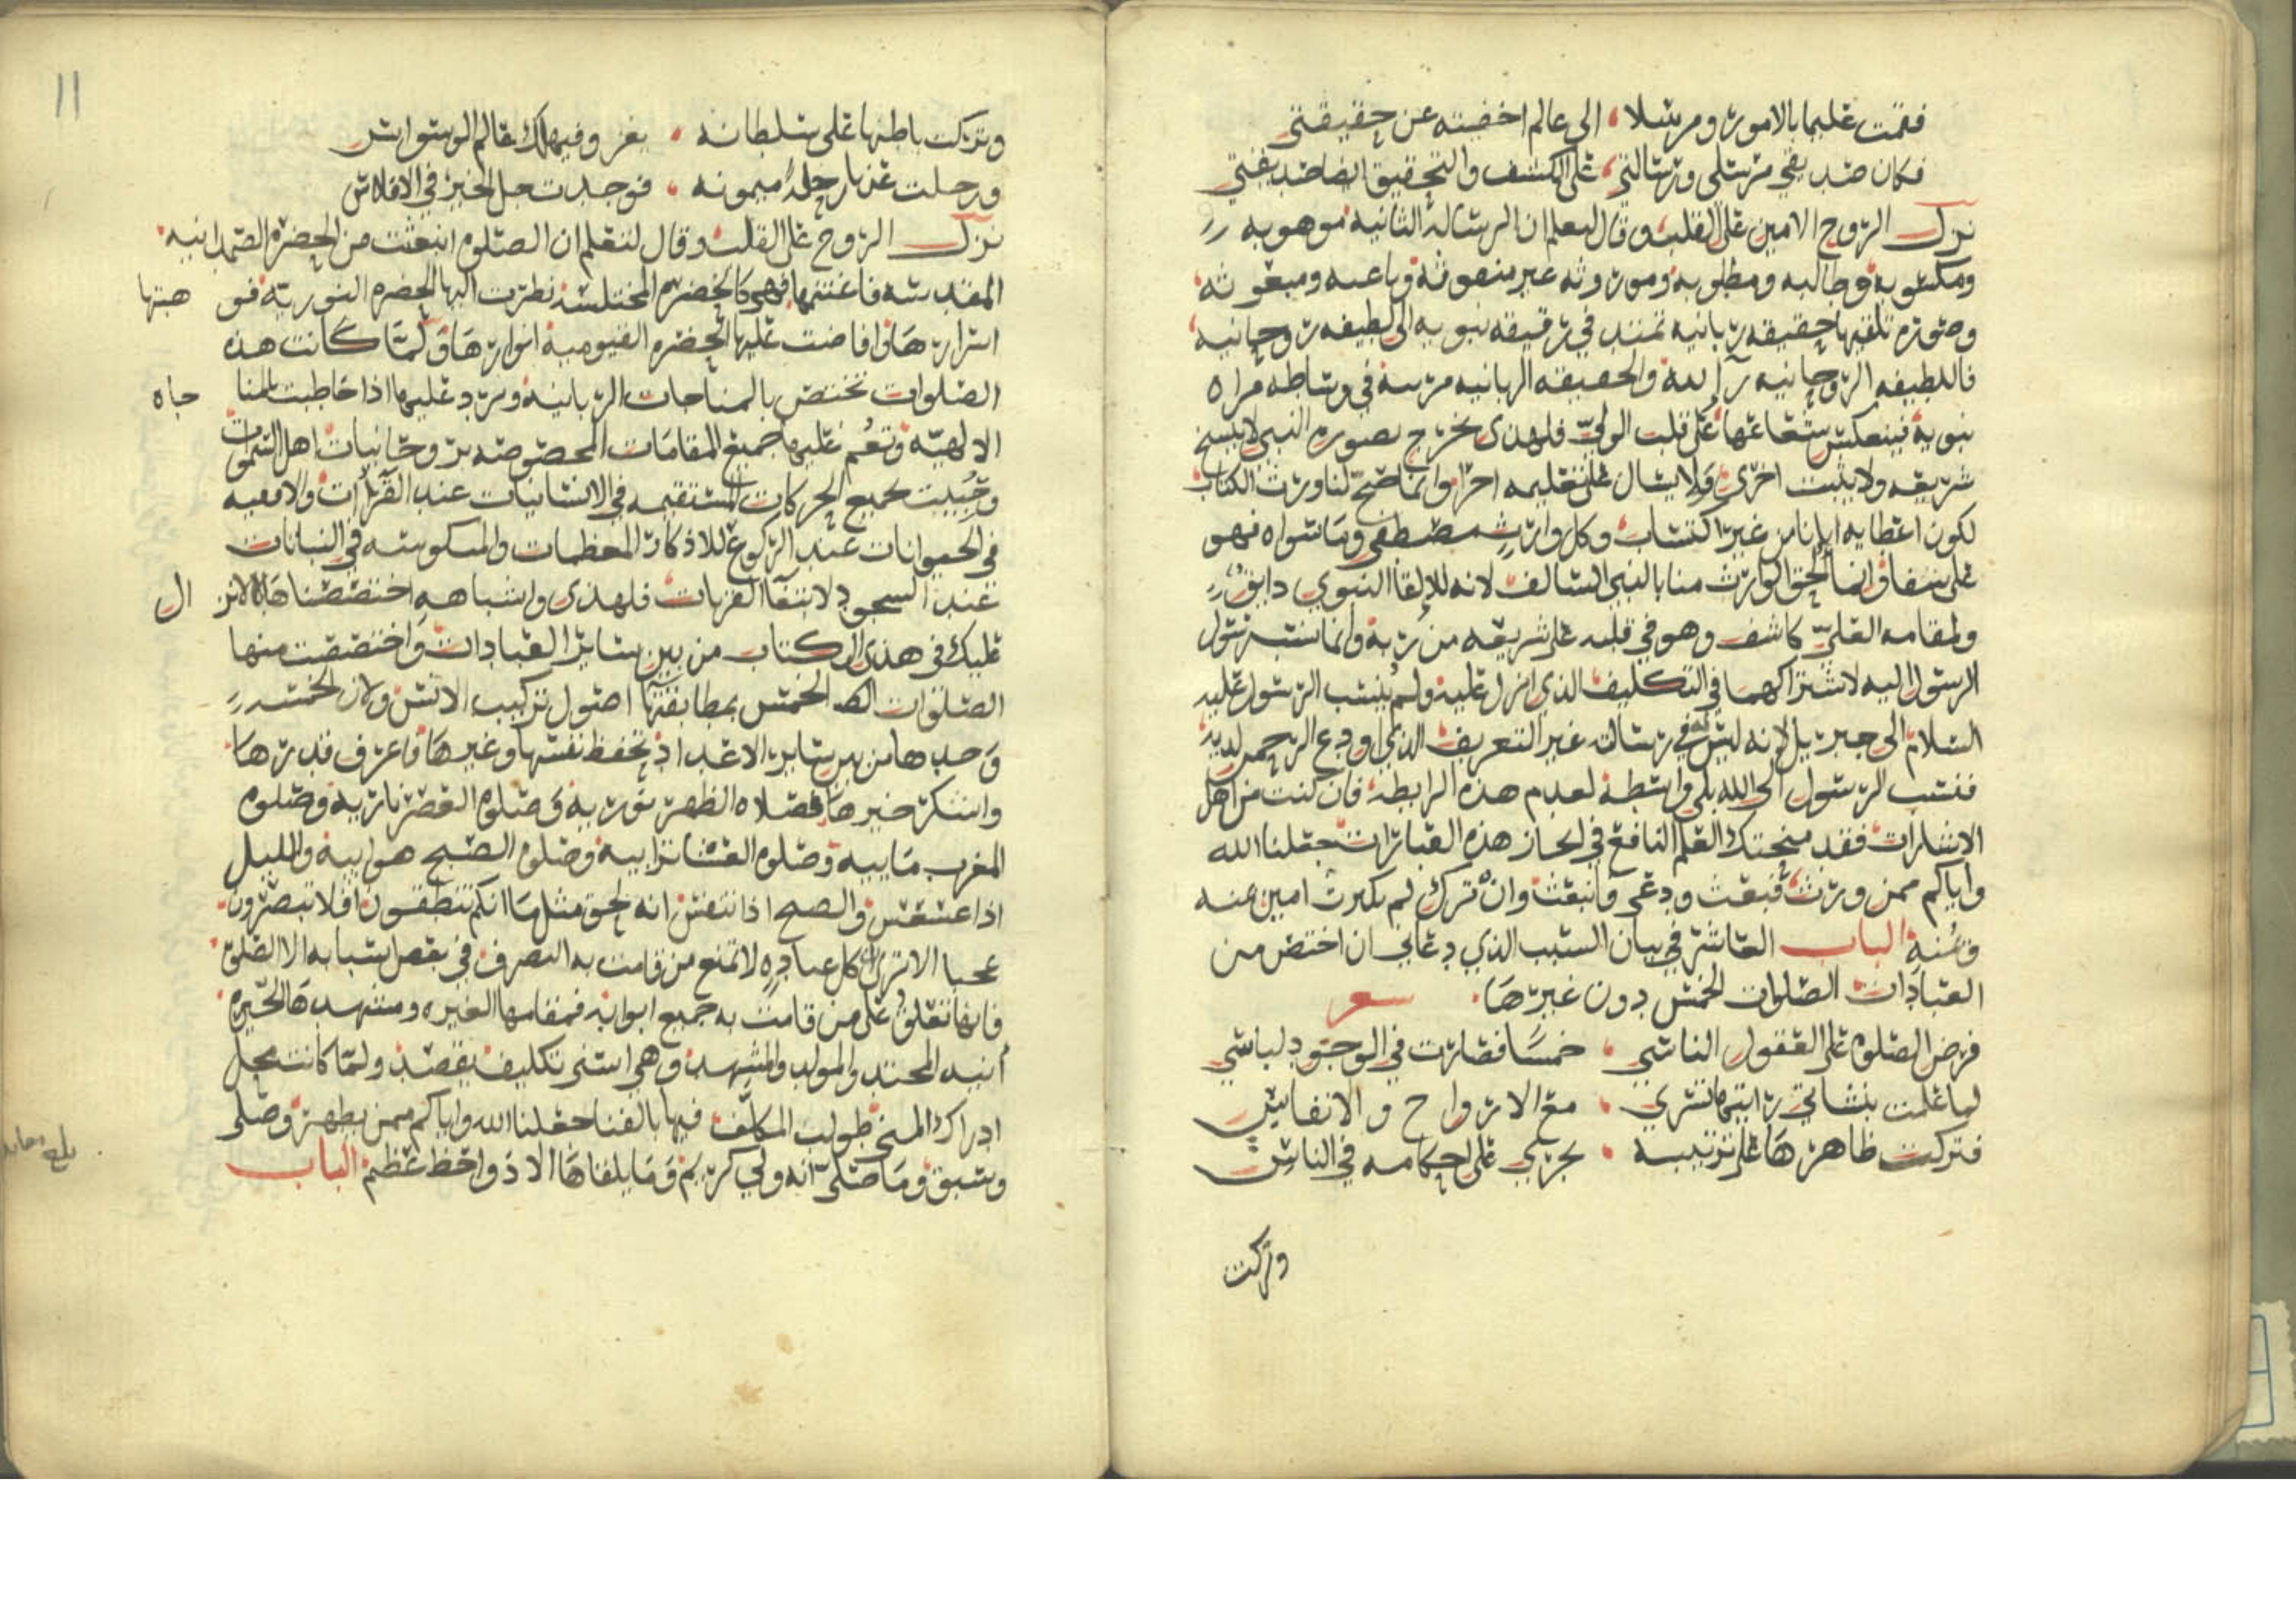 فقمت عليها بالامور ومرسلا الى عالم اخفيته عن حقيقتي
فكان صديقي مرسلي ورسالتي على الكشف والتحقيق ايضا صديقتي
نزل الروح الامين على القلب وقال ليعلم ان الرسالة الثانية موهوبه
ومكسوبه وطالبه ومطلوبه وموروثه غير مبعوثه وباعثه ومبعوثه
وصوره تلقيها حقيقه ربانيه تمتد في رقيقه نبويه الى لطيفه روحانيه
فاللطيفه الروحانيه والحقيقه الربانيه في وساطه مراه
نبوية فينعكس شعاعها على قلب الولي فلهذى يخرج بصوره النبي لا ينسخ
شريعه ولا يثبت اخرى ولا يسال على تعليمه اجرا وانما صح لنا ورث الكتاب
لكون اعطايه ايانا من غير اكتساب وكل وارث مصطفى وما سواه فهو
على شفا وانما الحق الوارث منا بالنبي السالف لانه للالقا النبوي دايق
ولمقامه العلي كاشف وهو في قلبه على شريعه من ربه وانما نسب رسول
الرسول اليه لاشتراكهما في التكليف الذي انزل عليه ولم ينسب الرسول عليه
السلام الى جبريل لانه ليس في رسالته غير التعريف الذي اودع الرحمن لديه
فنسب الرسول الى الله بلى واسطة لعدم هذه الرابطة فان كنت من اهل
الاشارات فقد منحتك العلم النافع في لحاز هذه العبارات جعلنا الله
واياكم ممن ورث فبعث ودعى فانبعث وان ترك لم يكترث امين عنه
ومنه الباب العاشر في بيان السبب الذي دعاني ان اختص من
العبادات الصلوات الخمس دون غيرها شعر
فرض الصلوة على العقول الناسي خمسا فصارت في الوجود لباسي
لما علمت بنشاتي رايتها تسري مع الارواح والانفاس
فتركت ظاهرها على ترتيبه يجري على احكامه في الناس
وتركت
11
وتركت باطنها على سلطانه يغزو فيهلك عالم الوسواس
ورحلت عنها رحلة ميمونه فوجدت حل الخير في الافلاس
نزل الروح على القلب وقال لتعلم ان الصلوة انبعثت من الحضرة الصمدانيه
المقدسه فاغتنمها فهي كالحضرة المختلسه نظرت اليها الحضره النورية فو هبتها
اسرارها وافاضت عليها الحضره القيومية انوارها ولما كانت هذه
الصلوات تختص بالمناجات الربانية ويرد عليها اذا خاطبت المنا جاه
الالهية وتعم عليها جميع المقامات المخصوصه بروحانيات اهل السموات
وحببت جميع الحركات المستقيمه في الانسانيات عند القرآات والافقيه
في الحيوانات عند الركوع للاذكار المعظمات والمنكوسه في النباتات
عند السجود لابتغا القربات فلهذى واشباهه اختصصناها لانز ال
عليك في هذى الكتاب من بين ساير العبادات واختصت منها
الصلوات الخمس بمطابقتها اصول تركيب الانس ولان الخمسه
وحدها من بين ساير الاعداد تحفظ نفسها وغيرها فاعرف قدرها
واشكر خيرها فصلاه الظهر نوريه وصلوة العصر ناريه وصلوة
المغرب ماييه وصلوة العشا ترابيه وصلوة الصبح هوايية والليل
اذا عسعس والصبح اذا تنفس انه لحق مثل ما انكم تنطقون افلا تبصرون
عجبا الا ترى ان كل عباده لا تمنع من قامت به التصرف في بعض اسبابه الا الصلوة
فانها تغلق على من قامت به جميع ابوابه فمقامها الغيره ومشهدها الحيرة
ابنيه المحتد والمولد والمشهد وهي اسنى تكليف يقصد ولما كانت محل
ادراك المنى طولب المكلف فيها بالفنا جعلنا الله واياكم ممن يطهر وصلى
وسبق وما صلى انه ولي كريم وما يلقاها الا ذوا حظ عظيم الباب
بلغ